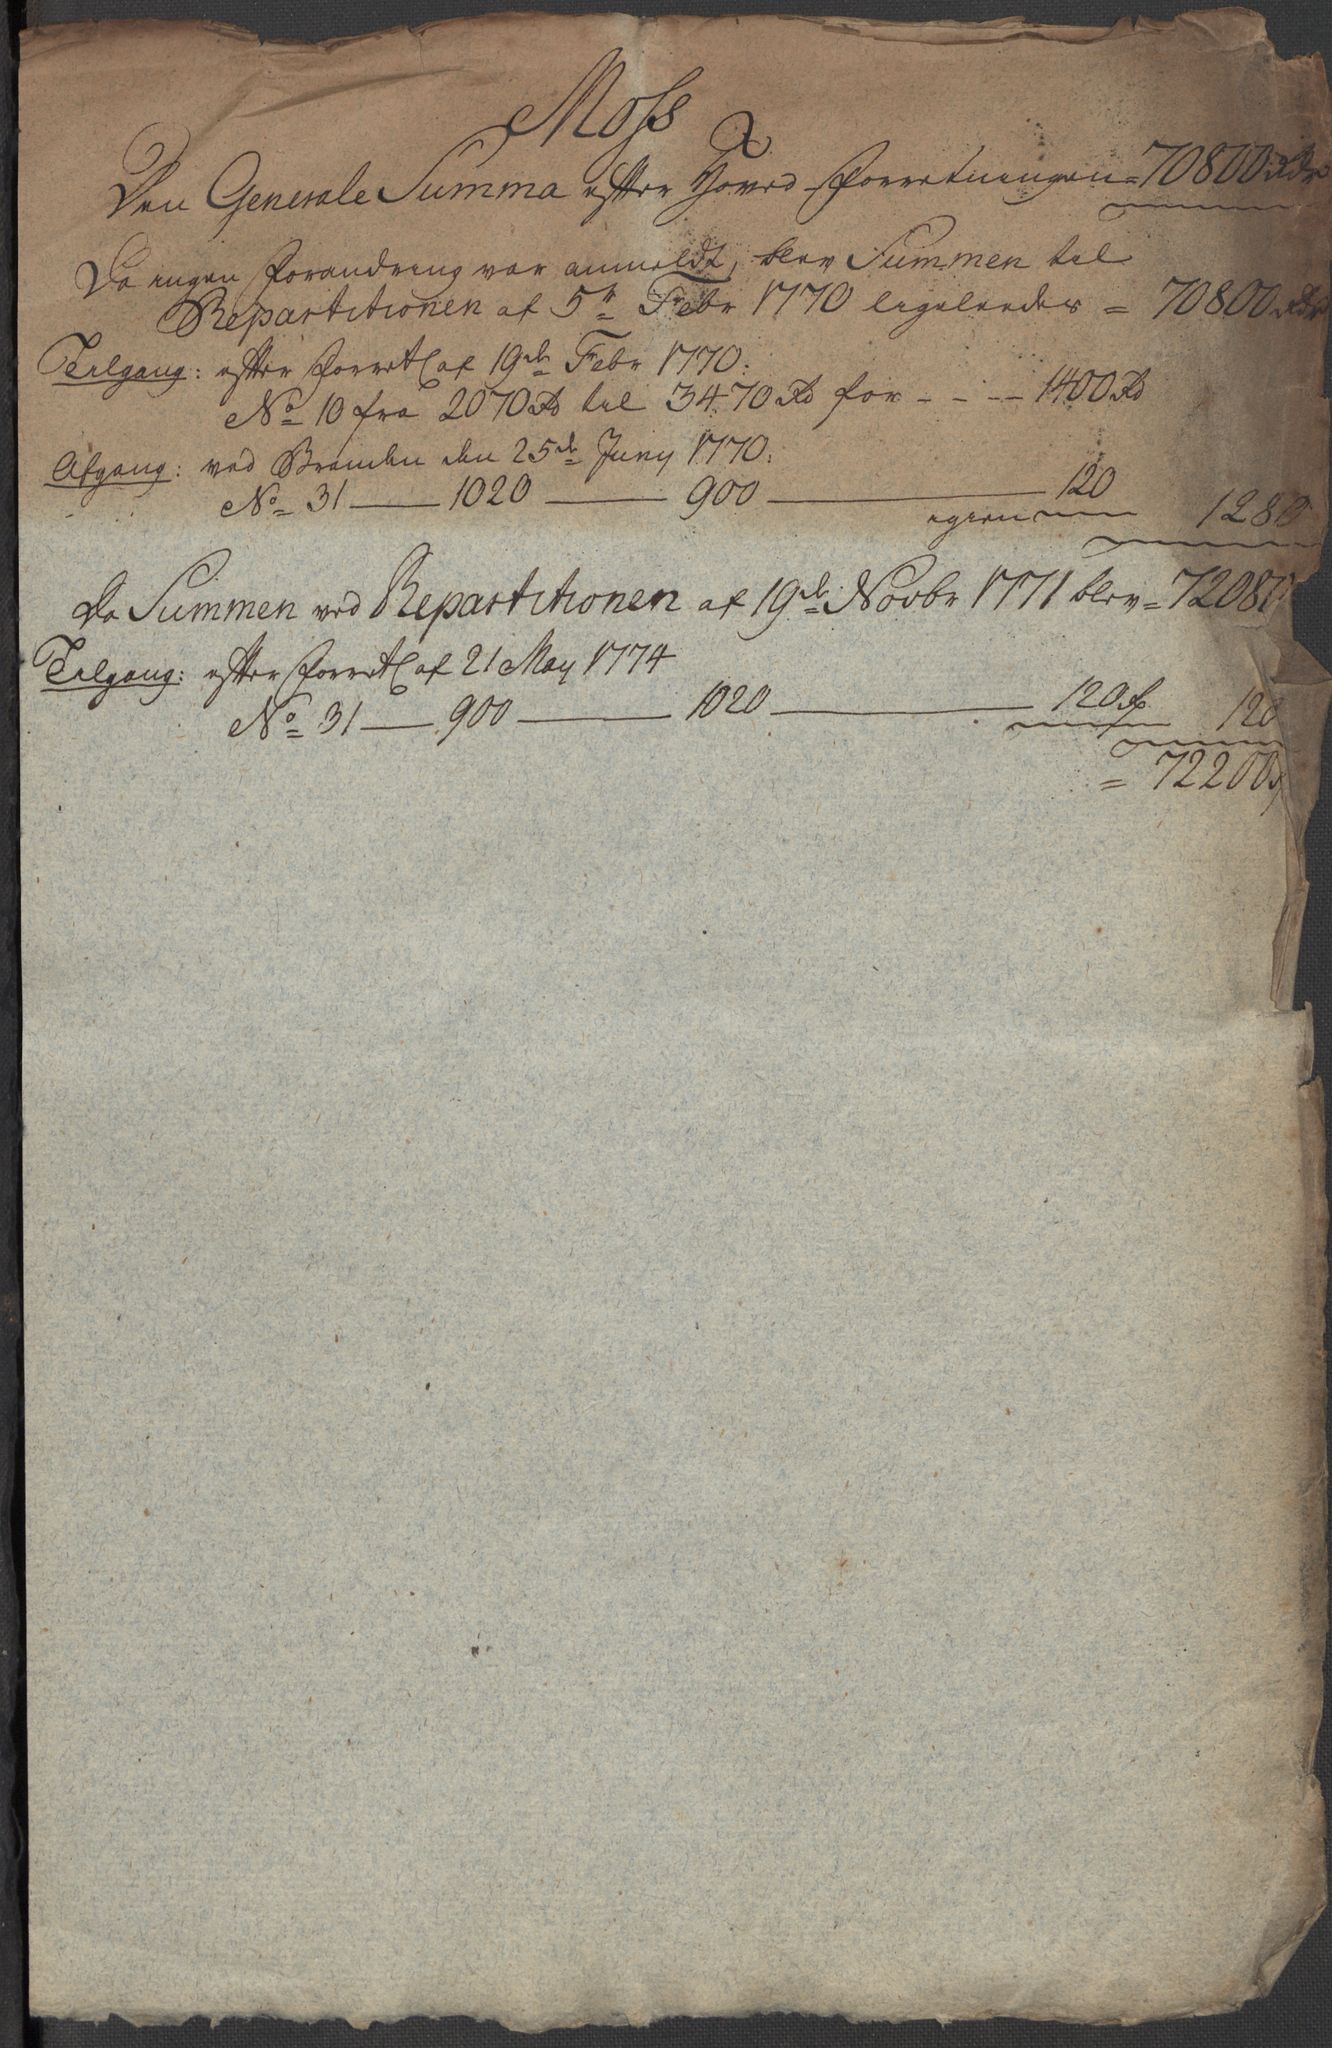 Moss
Den Generale Summa efter Hoved-Forretningen = 70800 Rdr
Da ingen forandring var anmeldt, blev Summen til
Repartitionen af 5te Febr 1770 ligeledes = 70800 Rdr
Tilgang: efter Forretn af 19de Febr 1770:
No 10 fra 2070 Rd til 3470 Rd for - - - - 1400 Rd
Afgang: ved Branden den 25de Juny 1770:
No 31 — 1020 — 900 — 120
igien 1280
Da Summen ved Repartitionen af 19de Novbr 1771 blev = 72080
Tilgang: efter Forretn af 21 May 1774
No 31 — 900 — 1020 — 120 rd 120
= 72200